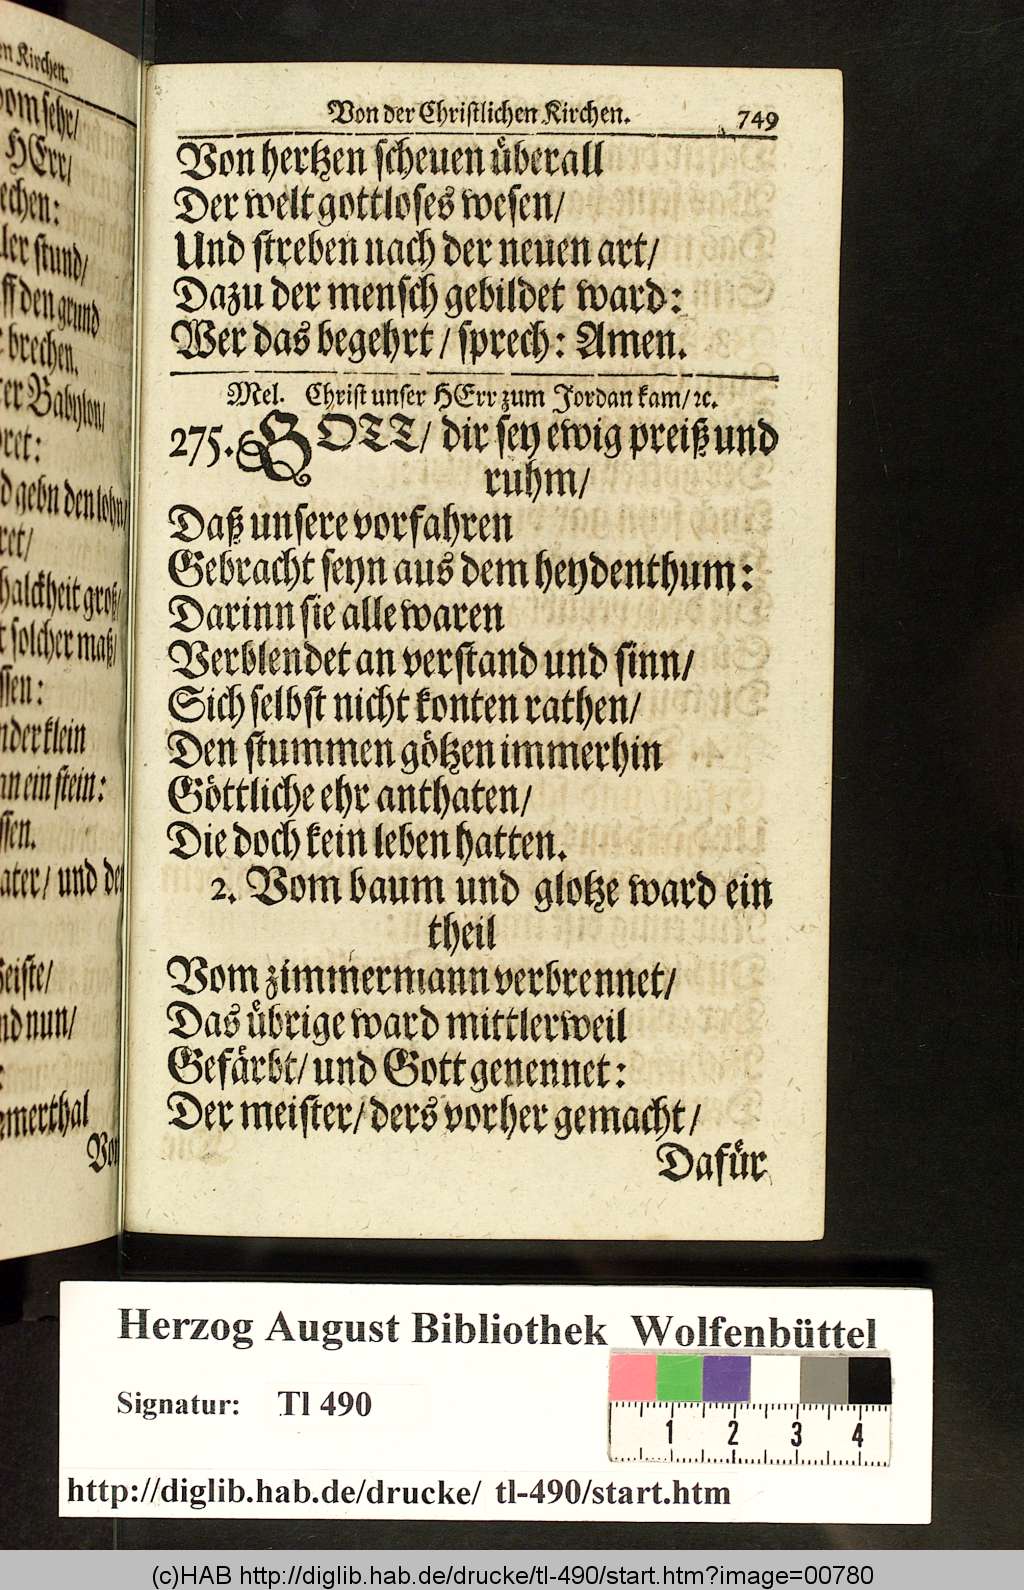 en Kirchen.
vom sehr/
HErr/
echen:
ler stund/
ff den grund
brechen.
er Babylon/
ret:
d gebn den lohn/
ret/
halckheit groß/
t solcher maß/
ssen:
nder klein
nn ein stein:
ssen.
ater/ und de
Geiste/
nd nun/
merthal
Von
Von der Christlichen Kirchen. 749
Von hertzen scheuen überall
Der welt gottloses wesen/
Und streben nach der neuen art/
Dazu der mensch gebildet ward:
Wer das begehrt/ sprech: Amen.
Mel. Christ unser HErr zum Jordan kam/ ꝛc.
275. GOTT/ dir sey ewig preiß und
ruhm/
Daß unsere vorfahren
Gebracht seyn aus dem heydenthum:
Darinn sie alle waren
Verblendet an verstand und sinn/
Sich selbst nicht konten rathen/
Den stummen götzen immerhin
Göttliche ehr anthaten/
Die doch kein leben hatten.
2. Vom baum und glotze ward ein
theil
Vom zimmermann verbrennet/
Das übrige ward mittlerweil
Gefärbt/ und Gott genennet:
Der meister/ ders vorher gemacht/
Dafür
Herzog August Bibliothek Wolfenbüttel
Signatur: Tl 490
1 2 3 4
http://diglib.hab.de/drucke/ tl-490/start.htm
(c)HAB http://diglib.hab.de/drucke/tl-490/start.htm?image=00780